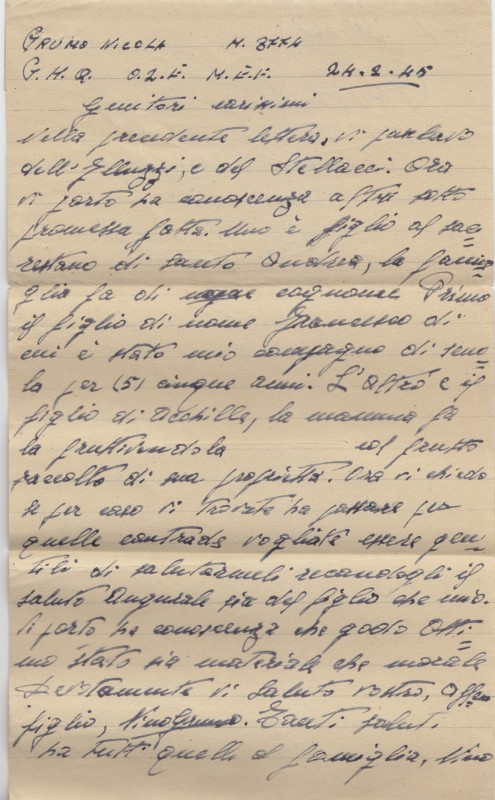 Grumo Nicola M. 3774
G.H.Q. O.2.E. M.E.F. 24-2-45
Genitori carissimi
Nella precedente lettera, vi parlavo
dell' e del Stellacci. Ora
vi porto ha conoscenza altri sotto
promessa fatta. Uno è figlio al sac=
restano di santo Andrea, la fami=
glia fa di cognome Primo
il figlio di nome Francesco di
cui è stato mio compagno di scuo=
la per (5) cinque anni. L'altro è il
figlio di Achille, la mamma fa
la fruttivendola col frutto
raccolto di sua proprietà. Ora vi chiedo
se per caso vi trovate ha passare per
quelle contrade vogliate essere gen=
tili di salutarmeli recandogli il
saluto Augurale sia del figlio che mio.
Vi porto ha conoscenza che godo Otti=
mo stato sia materiale che morale
Devotamente vi saluto vostro, affmo
figlio, Nino Grumo. Tanti saluti
ha tutti quelli d famiglia, Nino